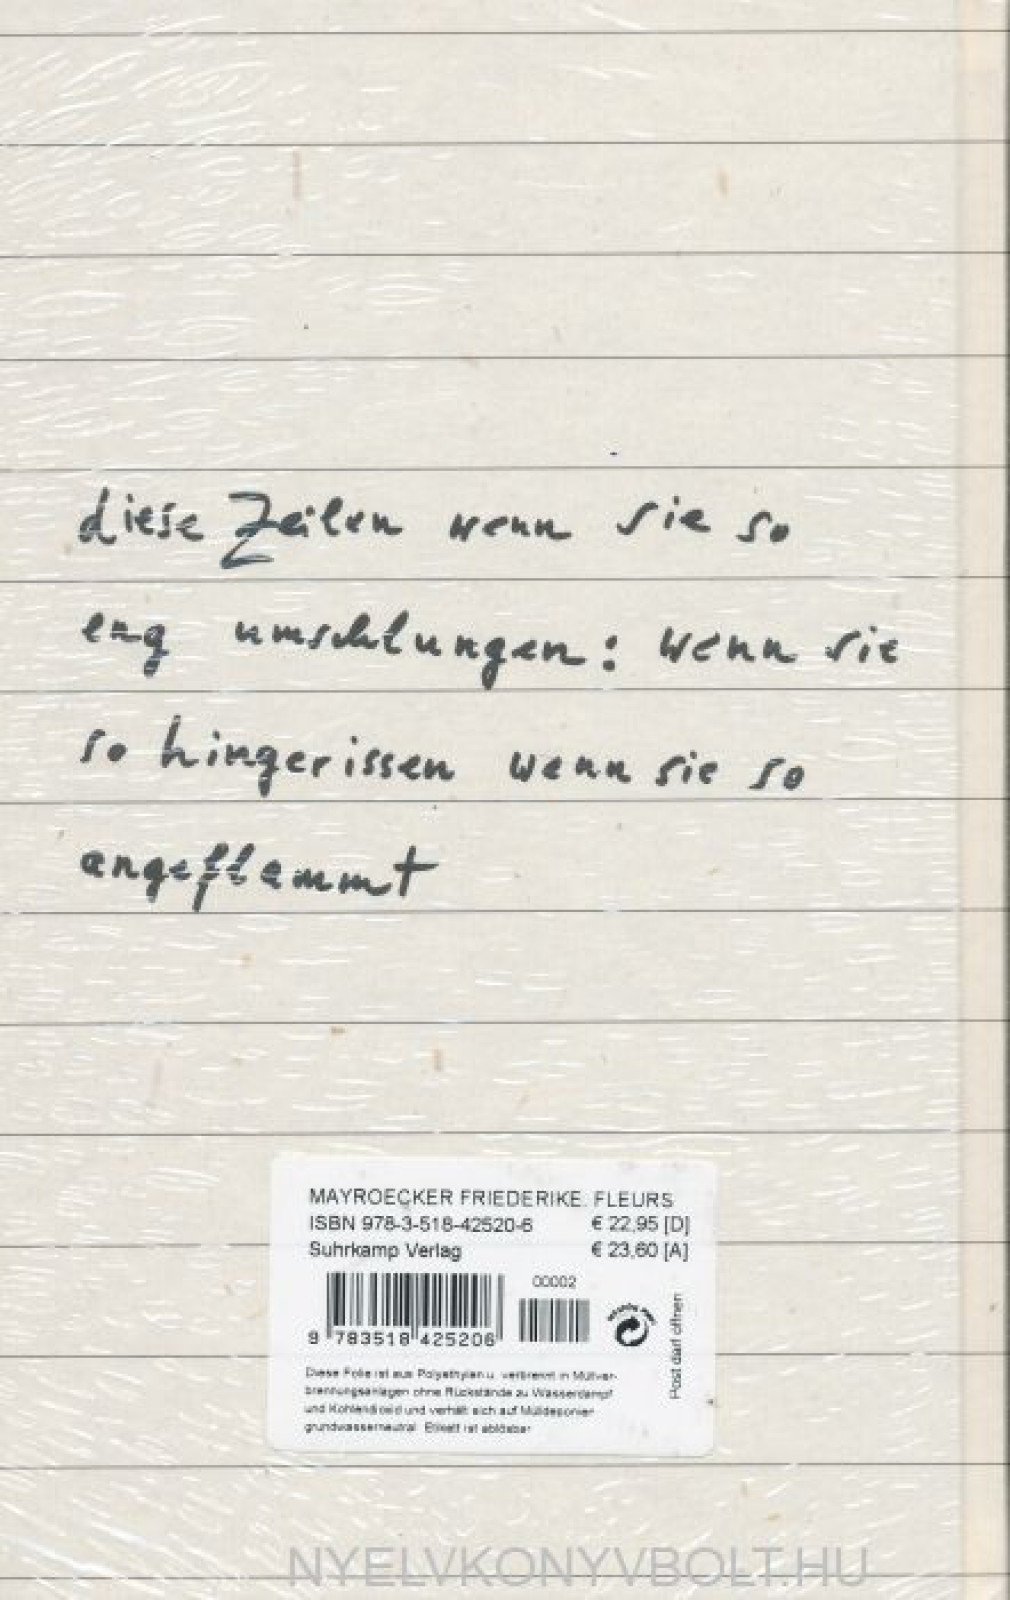 diese Zeilen wenn sie so
eng umschlungen: wenn sie
so hingerissen wenn sie so
angeflammt
MAYROECKER FRIEDERIKE: FLEURS
ISBN 978-3-518-42520-6 € 22,95 [D]
Suhrkamp Verlag € 23,60 [A]
00002
9 783518 425206
Post darf öffnen
Diese Folie ist aus Polyethylen u. verbrennt in Müllver-
brennungsanlagen ohne Rückstände zu Wasserdampf
und Kohlendioxid und verhält sich auf Mülldeponien
grundwasserneutral. Etikett ist ablösbar
NYELVKONYVBOLT.HU